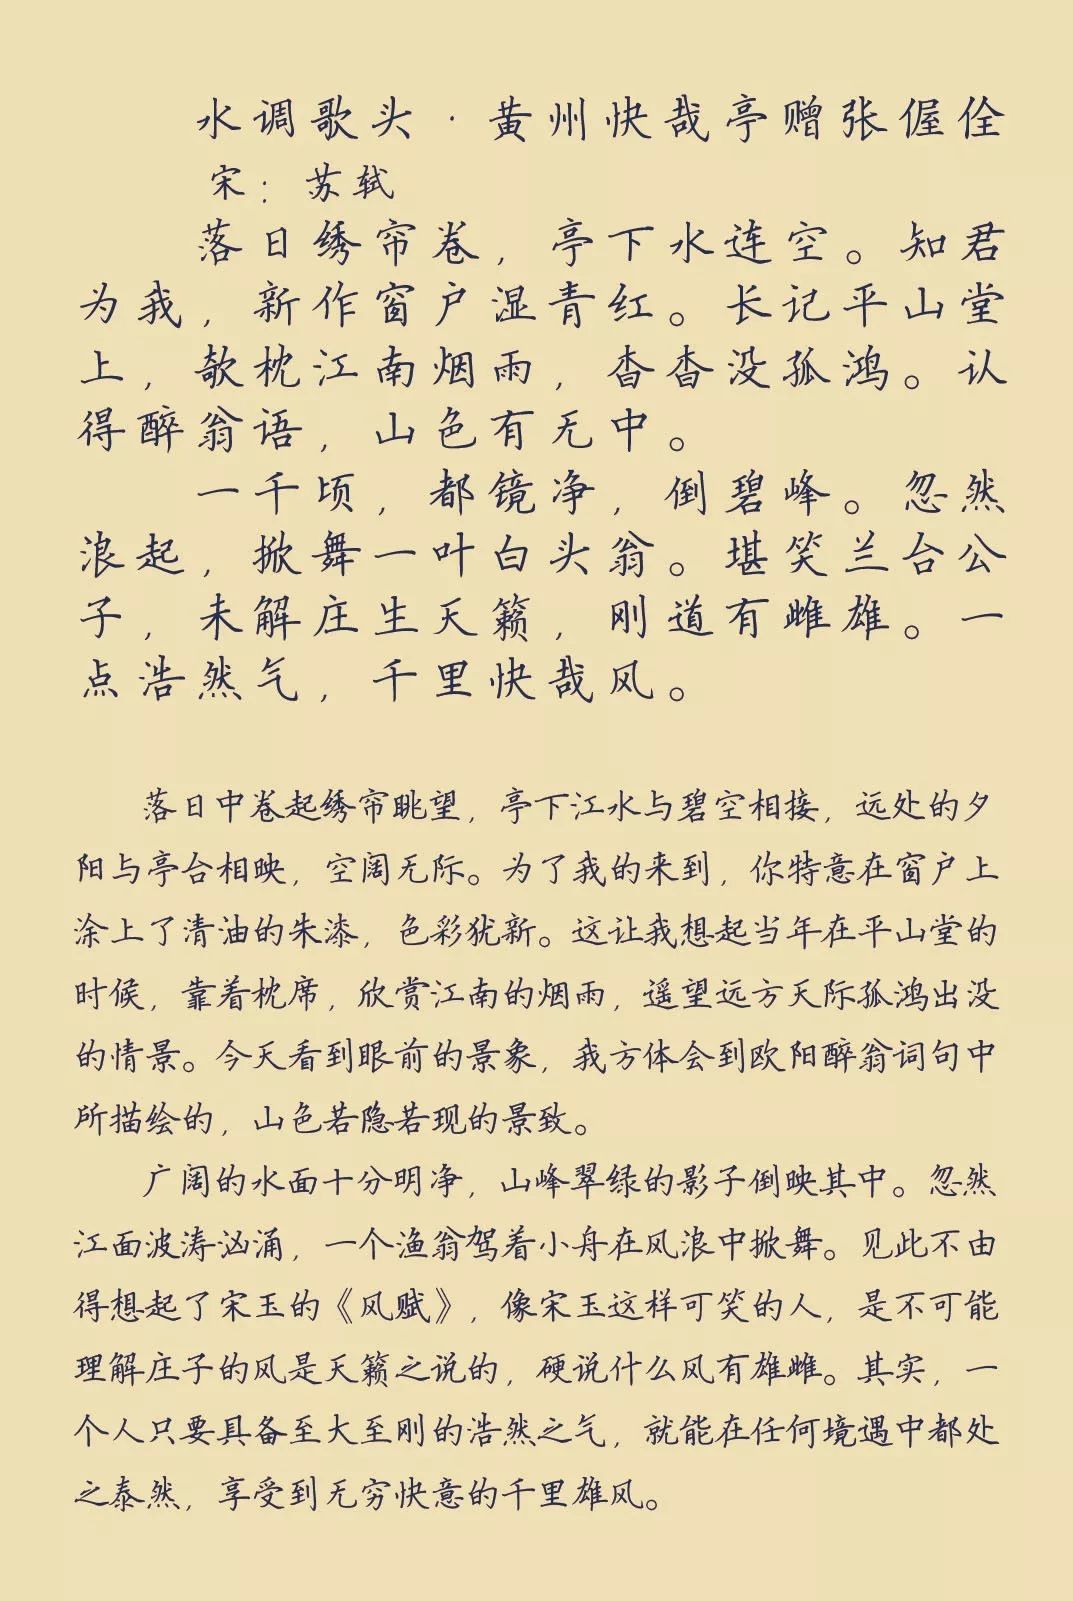 水调歌头·黄州快哉亭赠张偓佺
宋：苏轼
落日绣帘卷，亭下水连空。知君
为我，新作窗户湿青红。长记平山堂
上，欹枕江南烟雨，杳杳没孤鸿。认
得醉翁语，山色有无中。
一千顷，都镜净，倒碧峰。忽然
浪起，掀舞一叶白头翁。堪笑兰台公
子，未解庄生天籁，刚道有雌雄。一
点浩然气，千里快哉风。
落日中卷起绣帘眺望，亭下江水与碧空相接，远处的夕
阳与亭台相映，空阔无际。为了我的来到，你特意在窗户上
涂上了清油的朱漆，色彩犹新。这让我想起当年在平山堂的
时候，靠着枕席，欣赏江南的烟雨，遥望远方天际孤鸿出没
的情景。今天看到眼前的景象，我方体会到欧阳醉翁词句中
所描绘的，山色若隐若现的景致。
广阔的水面十分明净，山峰翠绿的影子倒映其中。忽然
江面波涛汹涌，一个渔翁驾着小舟在风浪中掀舞。见此不由
得想起了宋玉的《风赋》，像宋玉这样可笑的人，是不可能
理解庄子的风是天籁之说的，硬说什么风有雄雌。其实，一
个人只要具备至大至刚的浩然之气，就能在任何境遇中都处
之泰然，享受到无穷快意的千里雄风。